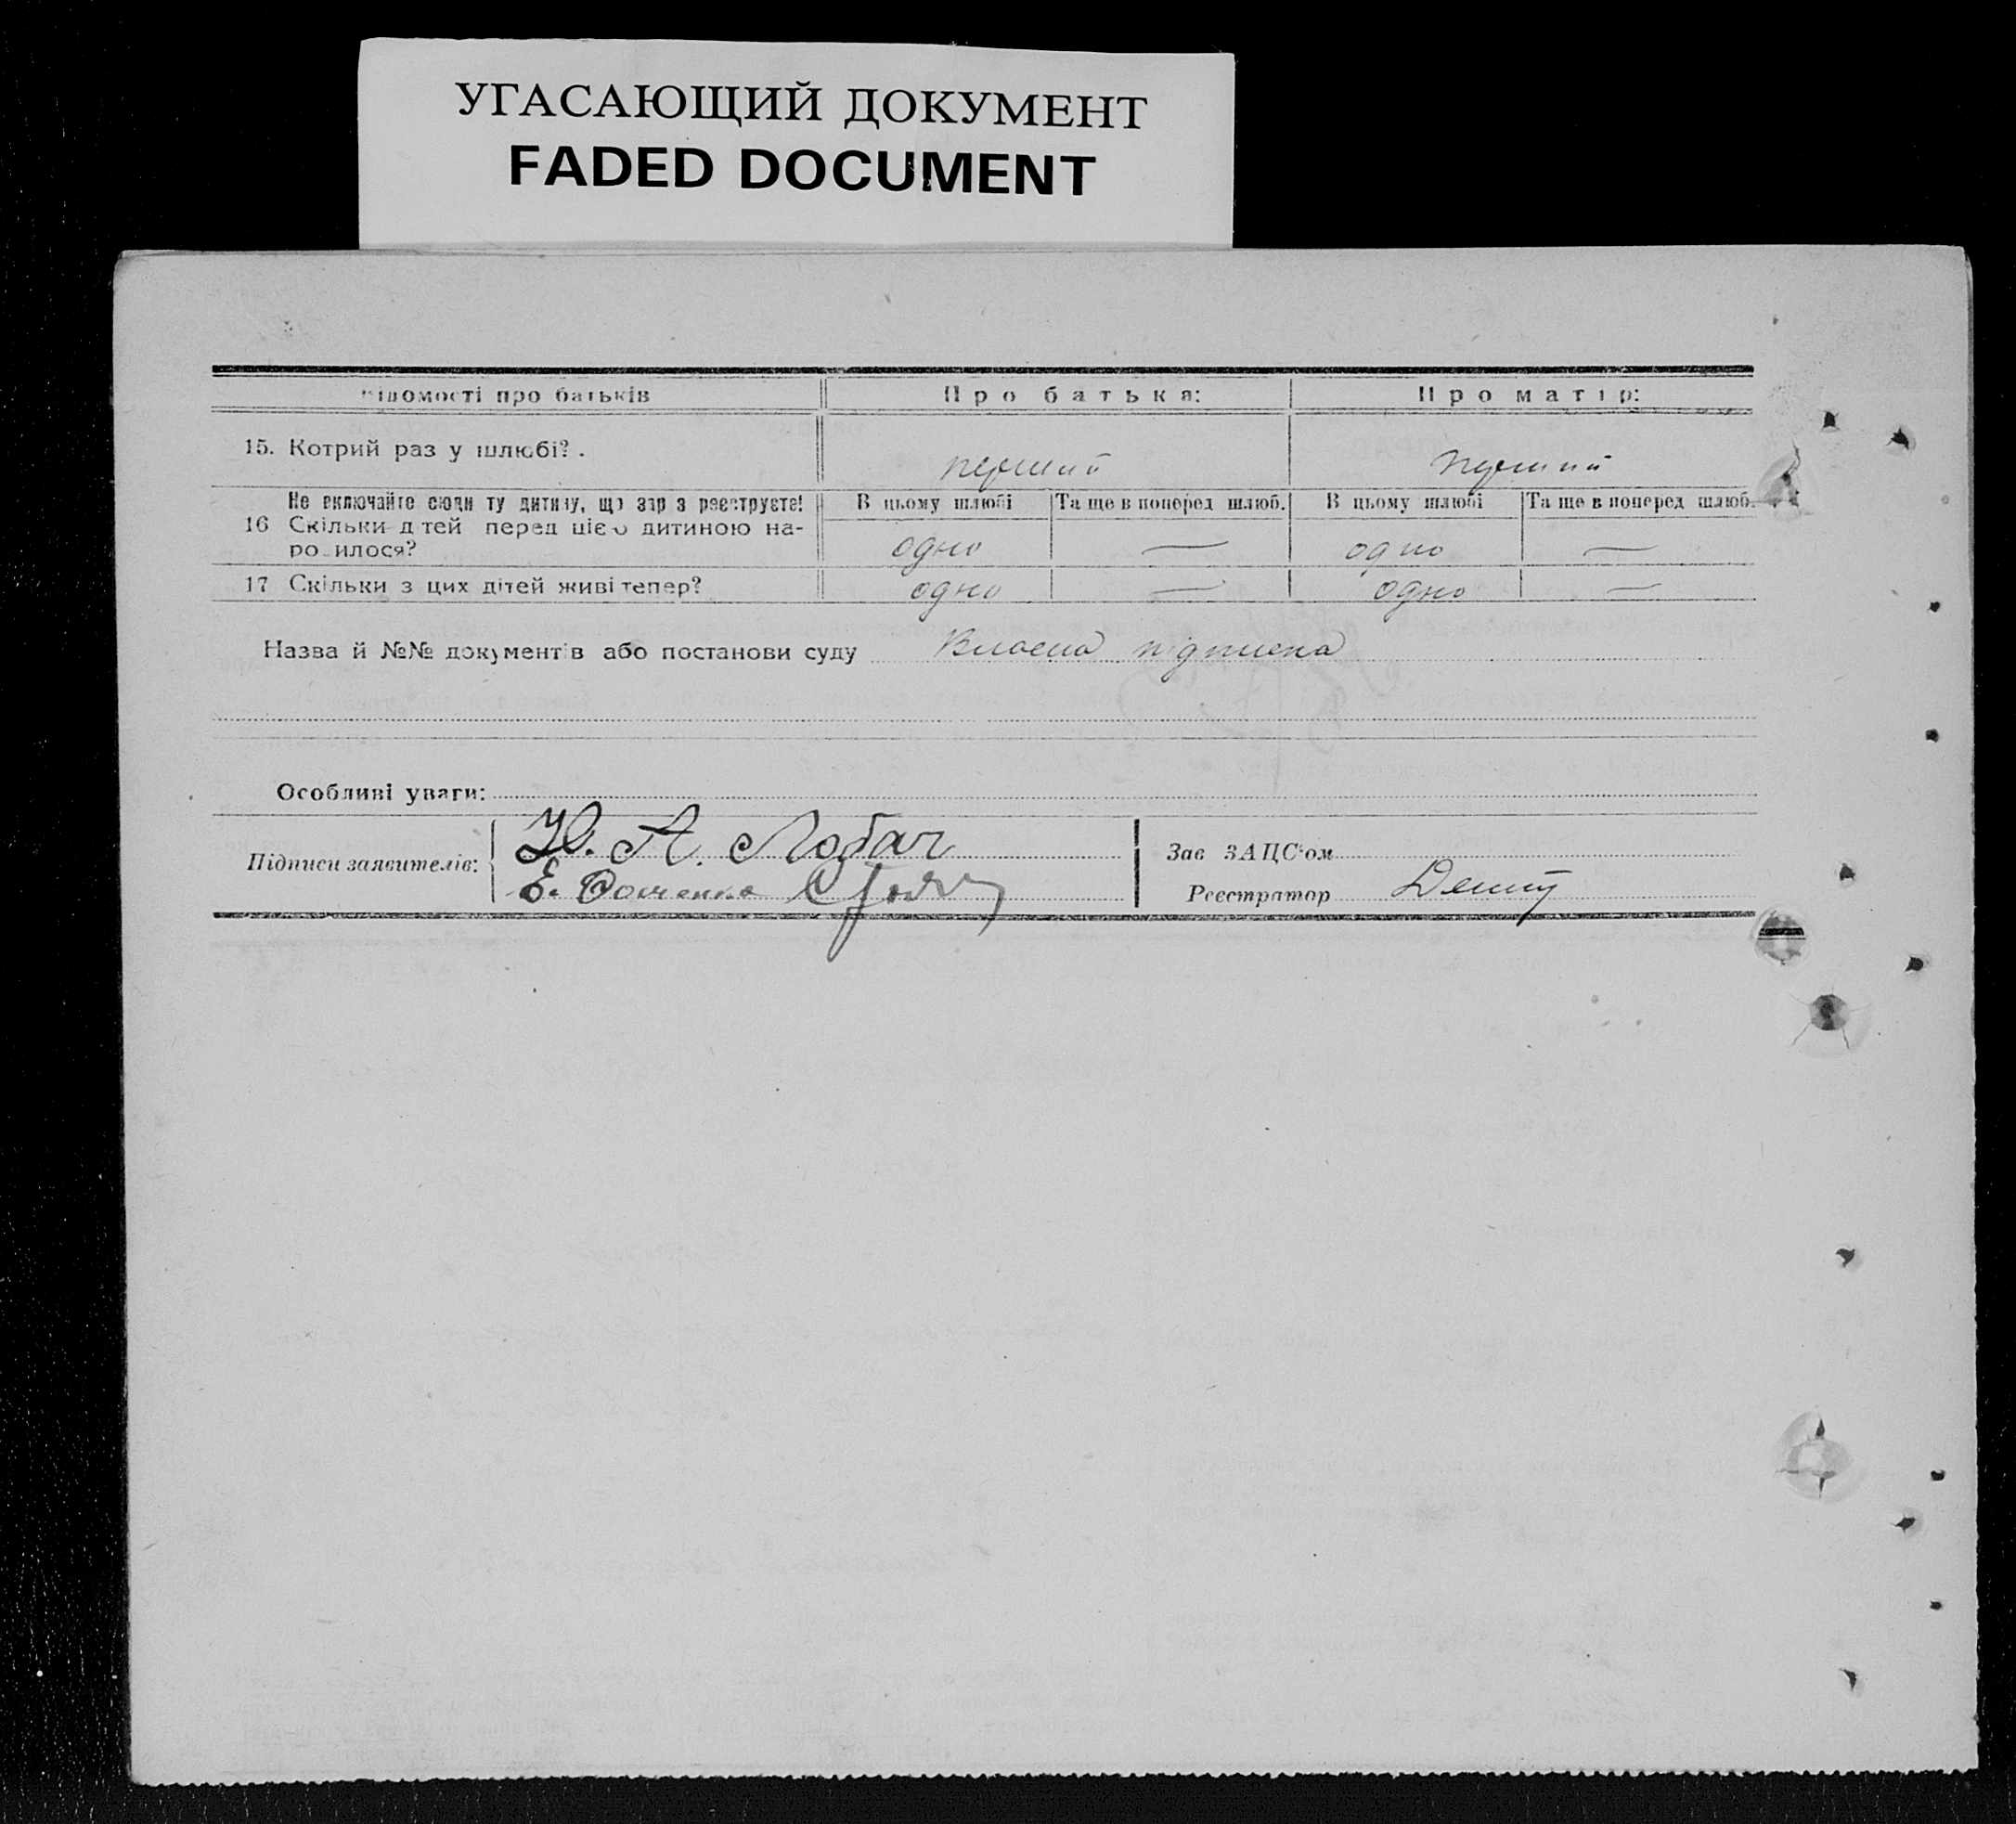 УГАСАЮЩИЙ ДОКУМЕНТ
FADED DOCUMENT
відомості про батьків Про батька: Про матір:
15. Котрий раз у шлюбі? . перший перший
Не включайте сюди ту дитину, що зар з реєструєте! В цьому шлюбі Та ще в поперед шлюб. В цьому шлюбі Та ще в поперед шлюб.
16 Скільки дітей перед цією дитиною на-
родилося? одно — одно —
17 Скільки з цих дітей живі тепер? одно — одно —
Назва й №№ документів або постанови суду Власна підписка
Особливі уваги:
Підписи заявителів: Ю. А. Лобач Зав ЗАЦС'ом
Е. Реєстратор